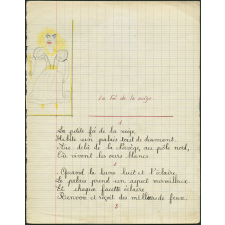 La fée de la neige.
1
La petite fée de la neige
Habite un palais tout de diamant,
Au delà de la Norvège, au pôle nord,
Où vivent les ours blancs
2
Quand la lune luit et l'éclaire,
Le palais prend un aspect merveilleux
Et chaque facette éclaire
Renvoie et reçoit des milliers de feux.
3